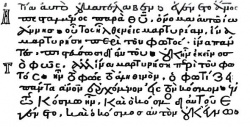 τία αὐτὸ οὐ κατέλαβεν· ἐγένετο ἄνος
πεσταλμένος παρὰ θυ, ὄνομα αὐτῶ ἰω
άννης· οὗτος ἦλθεν εἰς μαρτυρίαν, ἵνα
μαρτυρήση περὶ τοῦ φωτός· ἵνα πάν
τες πιστεύσωσι δι αὐτοῦ· οὐκ ἦν ἐκεῖνος
τὸ φῶς, ἀλλ ἵνα μαρτυρήση περὶ τοῦ φω
τός· ἦν τὸ φῶς τὸ ἀληθινὸν, ὃ φωτίζει
πάντα ἄνον ἐρχόμενον εἰς τὸν κόσμον· ἐν
τῶ κόσμω ἦν, καὶ ὁ κόσμος δι αὐτοῦ ἐ
γένετο, καὶ ὁ κόσμος αὐτὸν οὐκ ἔγνω